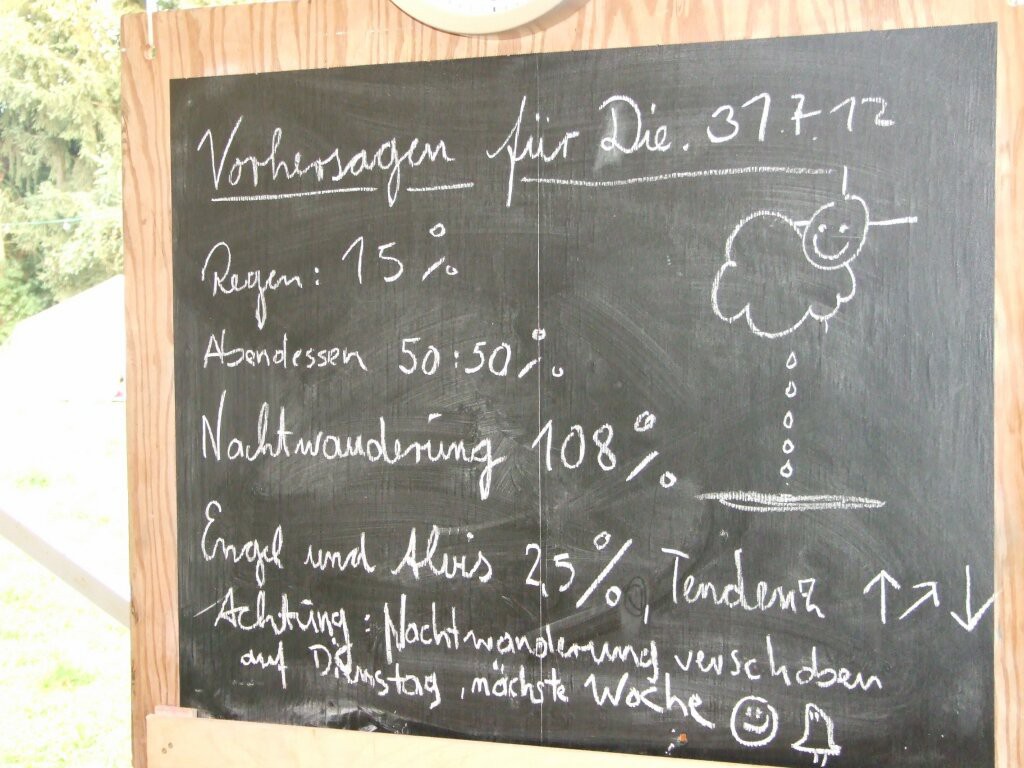 Vorhersagen für Die. 31.7.12
Regen: 15%
Abendessen 50:50%
Nachtwanderung 108%
Engel und Alvis 25%, Tendenz ↑↗↓
Achtung: Nachtwanderung verschoben
auf Dienstag, nächste Woche